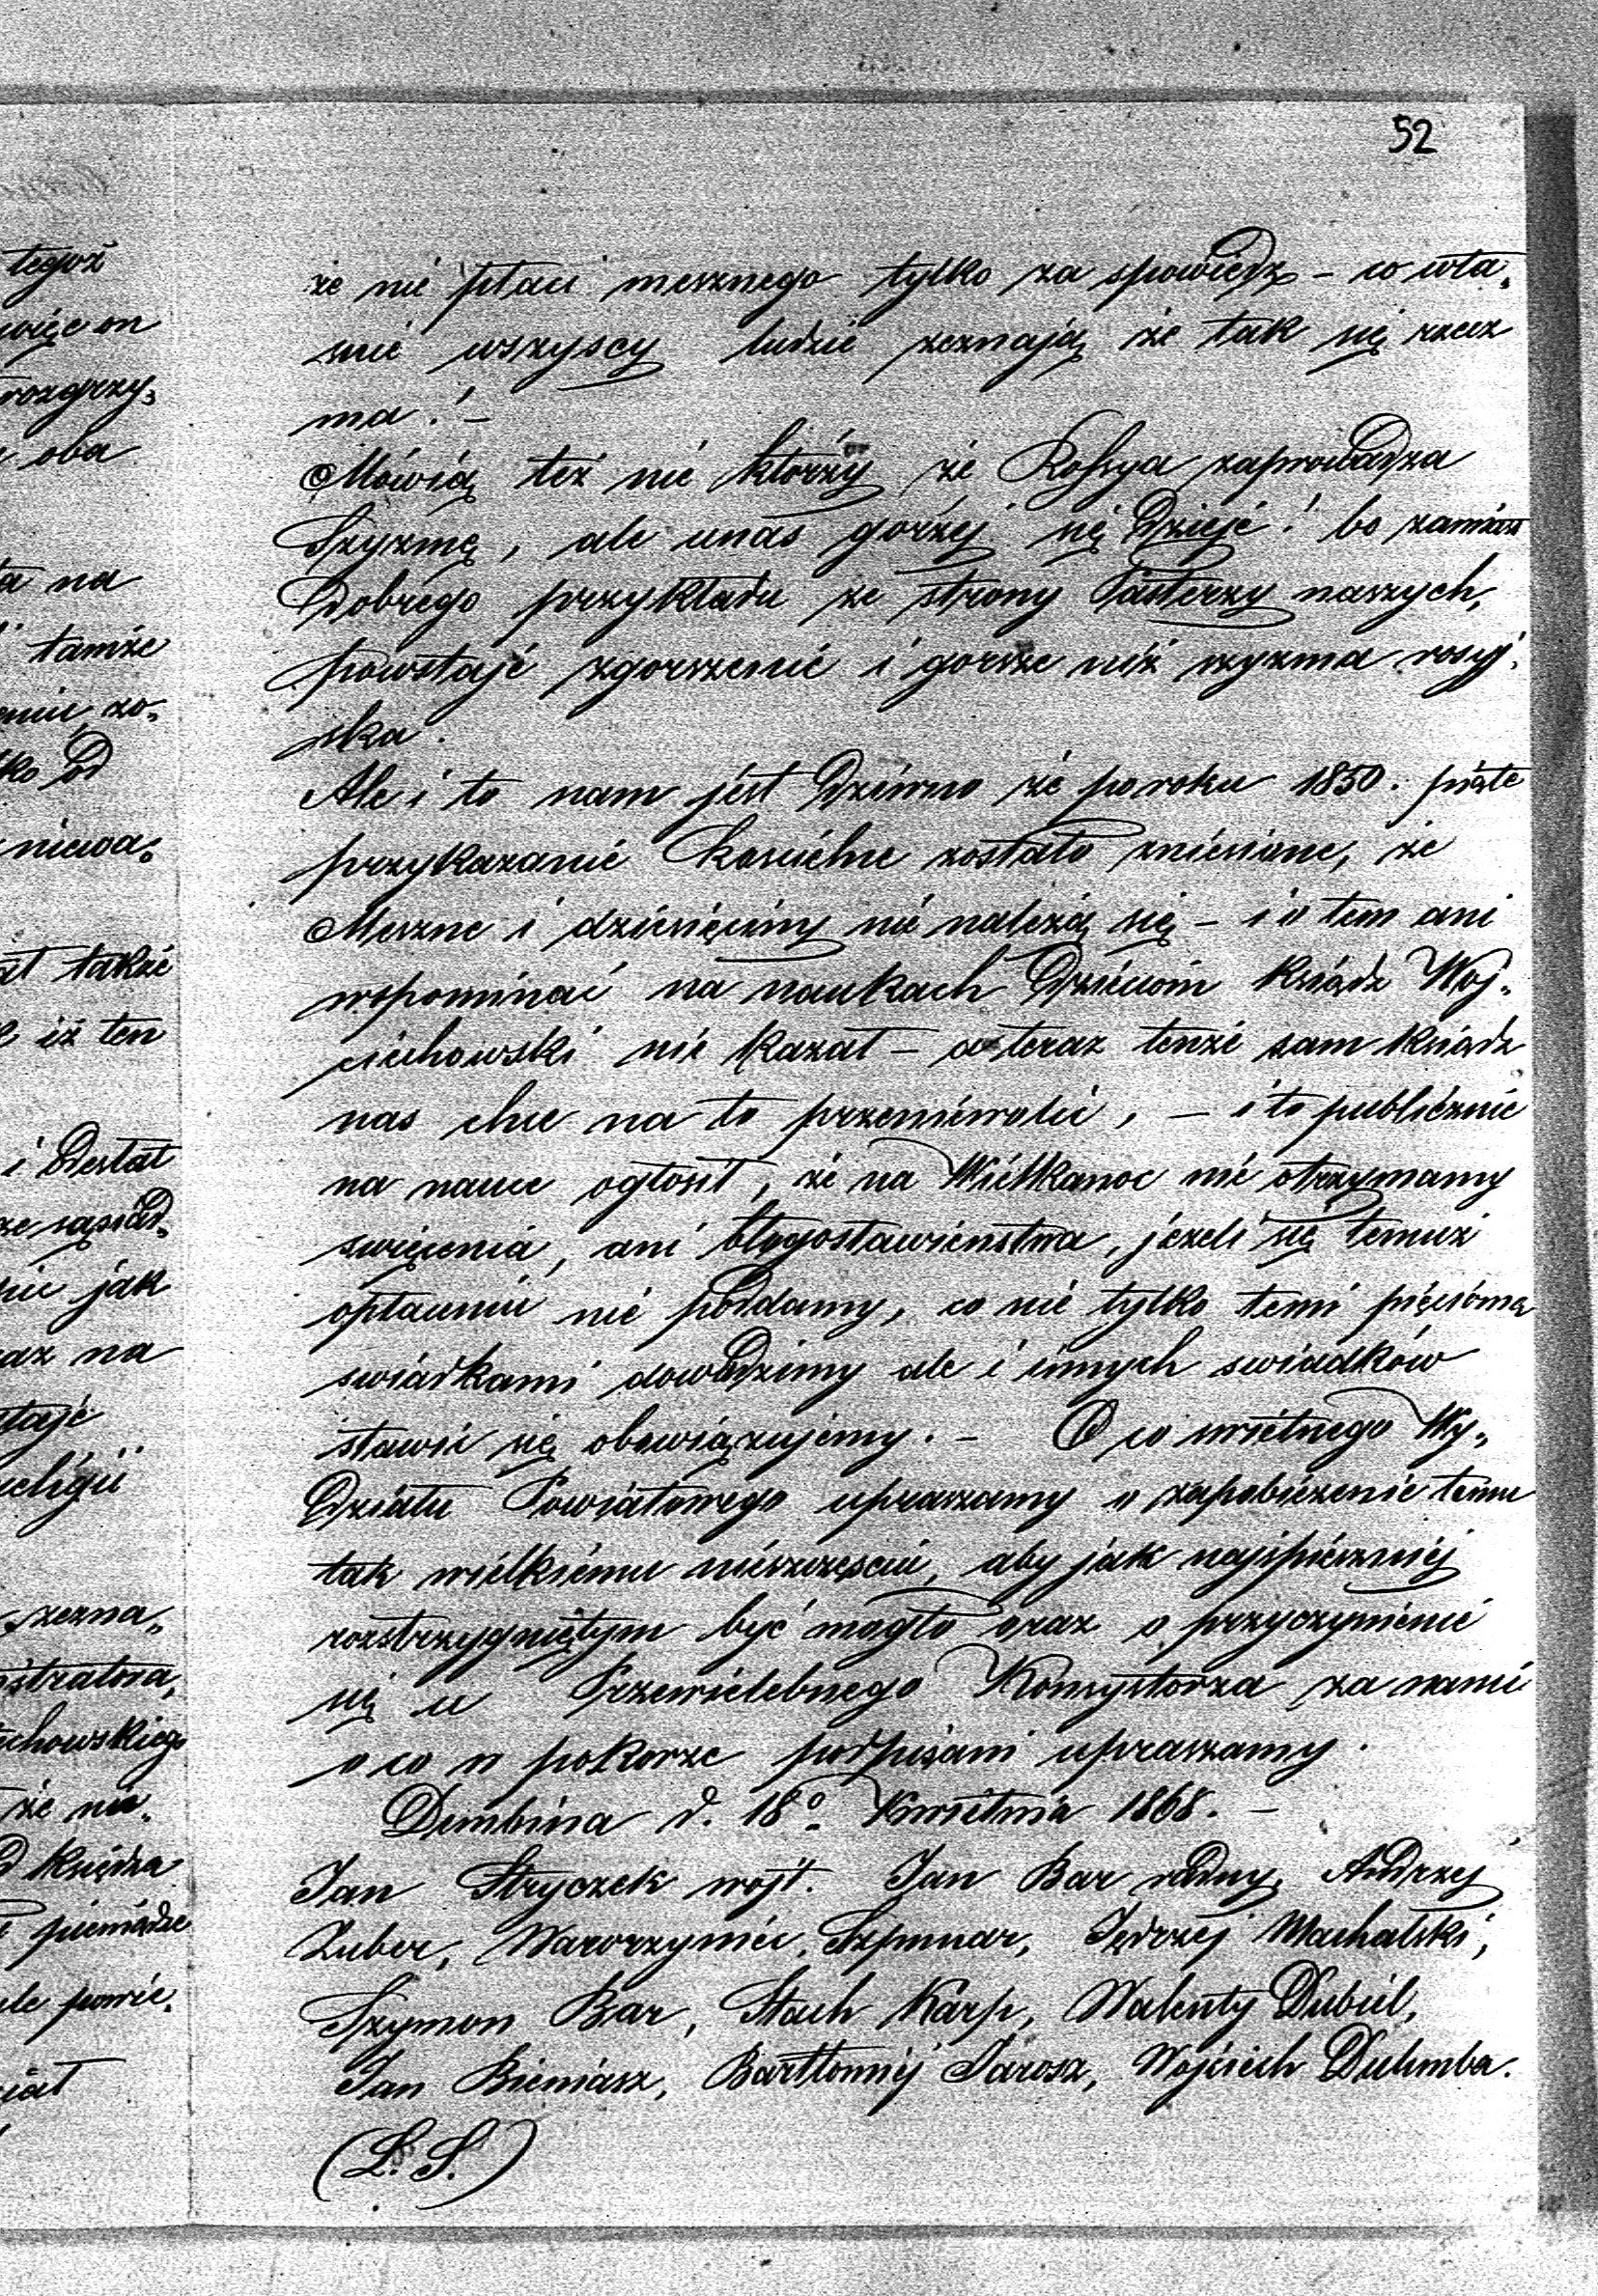 52
że nie płaci mesznego tylko za spowiedz – co wła„
snie wszyscy ludzie zeznają że tak się rzecz
ma! –
Mówią też nie którzy że Rossya zaprowadza
Szyzmę, ale unas gorzej się dzieje! bo zamiast
dobrego przykładu ze strony Pasterzy naszych,
powstaje zgorszenie i gorsze niż szyzma rosyj„
ska.
Ale i to nam jest dziwno że po roku 1850. piąte
przykazanie kościelne zostało zniesione, że
Meszne i dziesięciny nie należą się – i o tem ani
wspominać na naukach dzieciom ksiądz Woj„
ciechowski nie kazał – a teraz tenże sam ksiądz
nas chce na to przeniewolić, – i to publicznie
na nauce ogłosił, że na Wielkanoc nie otrzymamy
swięcenia, ani błogosławienstwa, jeżeli się temuż
opłaceniu nie poddamy, co nie tylko temi pięcioma
swiadkami dowodzimy ale i innych swiadków
stawić się obowiązujemy. – O co swietnego Wy„
działu Powiatowego upraszamy o zapobieżenie temu
tak wielkiemu nieszczęsciu, aby jak najspieszniej
rozstrzygniętym być mogło oraz o przyczynienie
się u Przewielebnego Konsystorza za nami
o co w pokorze podpisani upraszamy.
Dembina d. 18º Kwietnia 1868. –
Jan Stryczek wójt. Jan Bar radny, Andrzej
Zuber, Wawrzyniec Szpunar, Jędrzej Machalski,
Szymon Bar, Stach Karp, Walenty Dubiel,
Jan Bieniasz, Bartłomiej Jarosz, Wojciech Dulemba.
(L. S.)
tegoż
więc on
rozgrzy„
oba
na
tamże
zo„
od
niewa„
także
iż ten
i
sąsiad„
jak
na
zezna„
że nie„
księdza
pieniądze
powie„